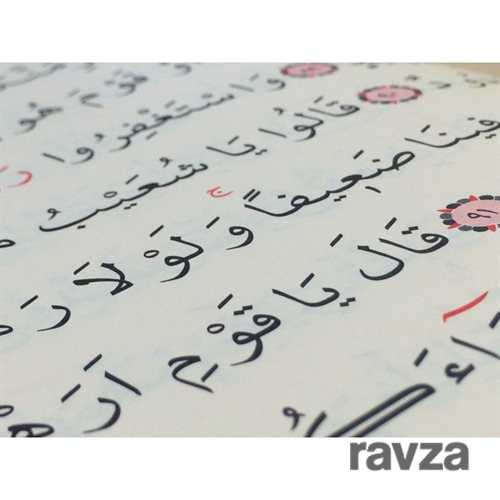 قَوْمَ هُو
وَاسْتَغْفِرُوا
قَالُوا يَا شُعَيْبُ
فِينَا ضَعِيفًا وَلَوْلَا رَ
٩١ قَالَ يَا قَوْمِ اَرَهْ
ravza